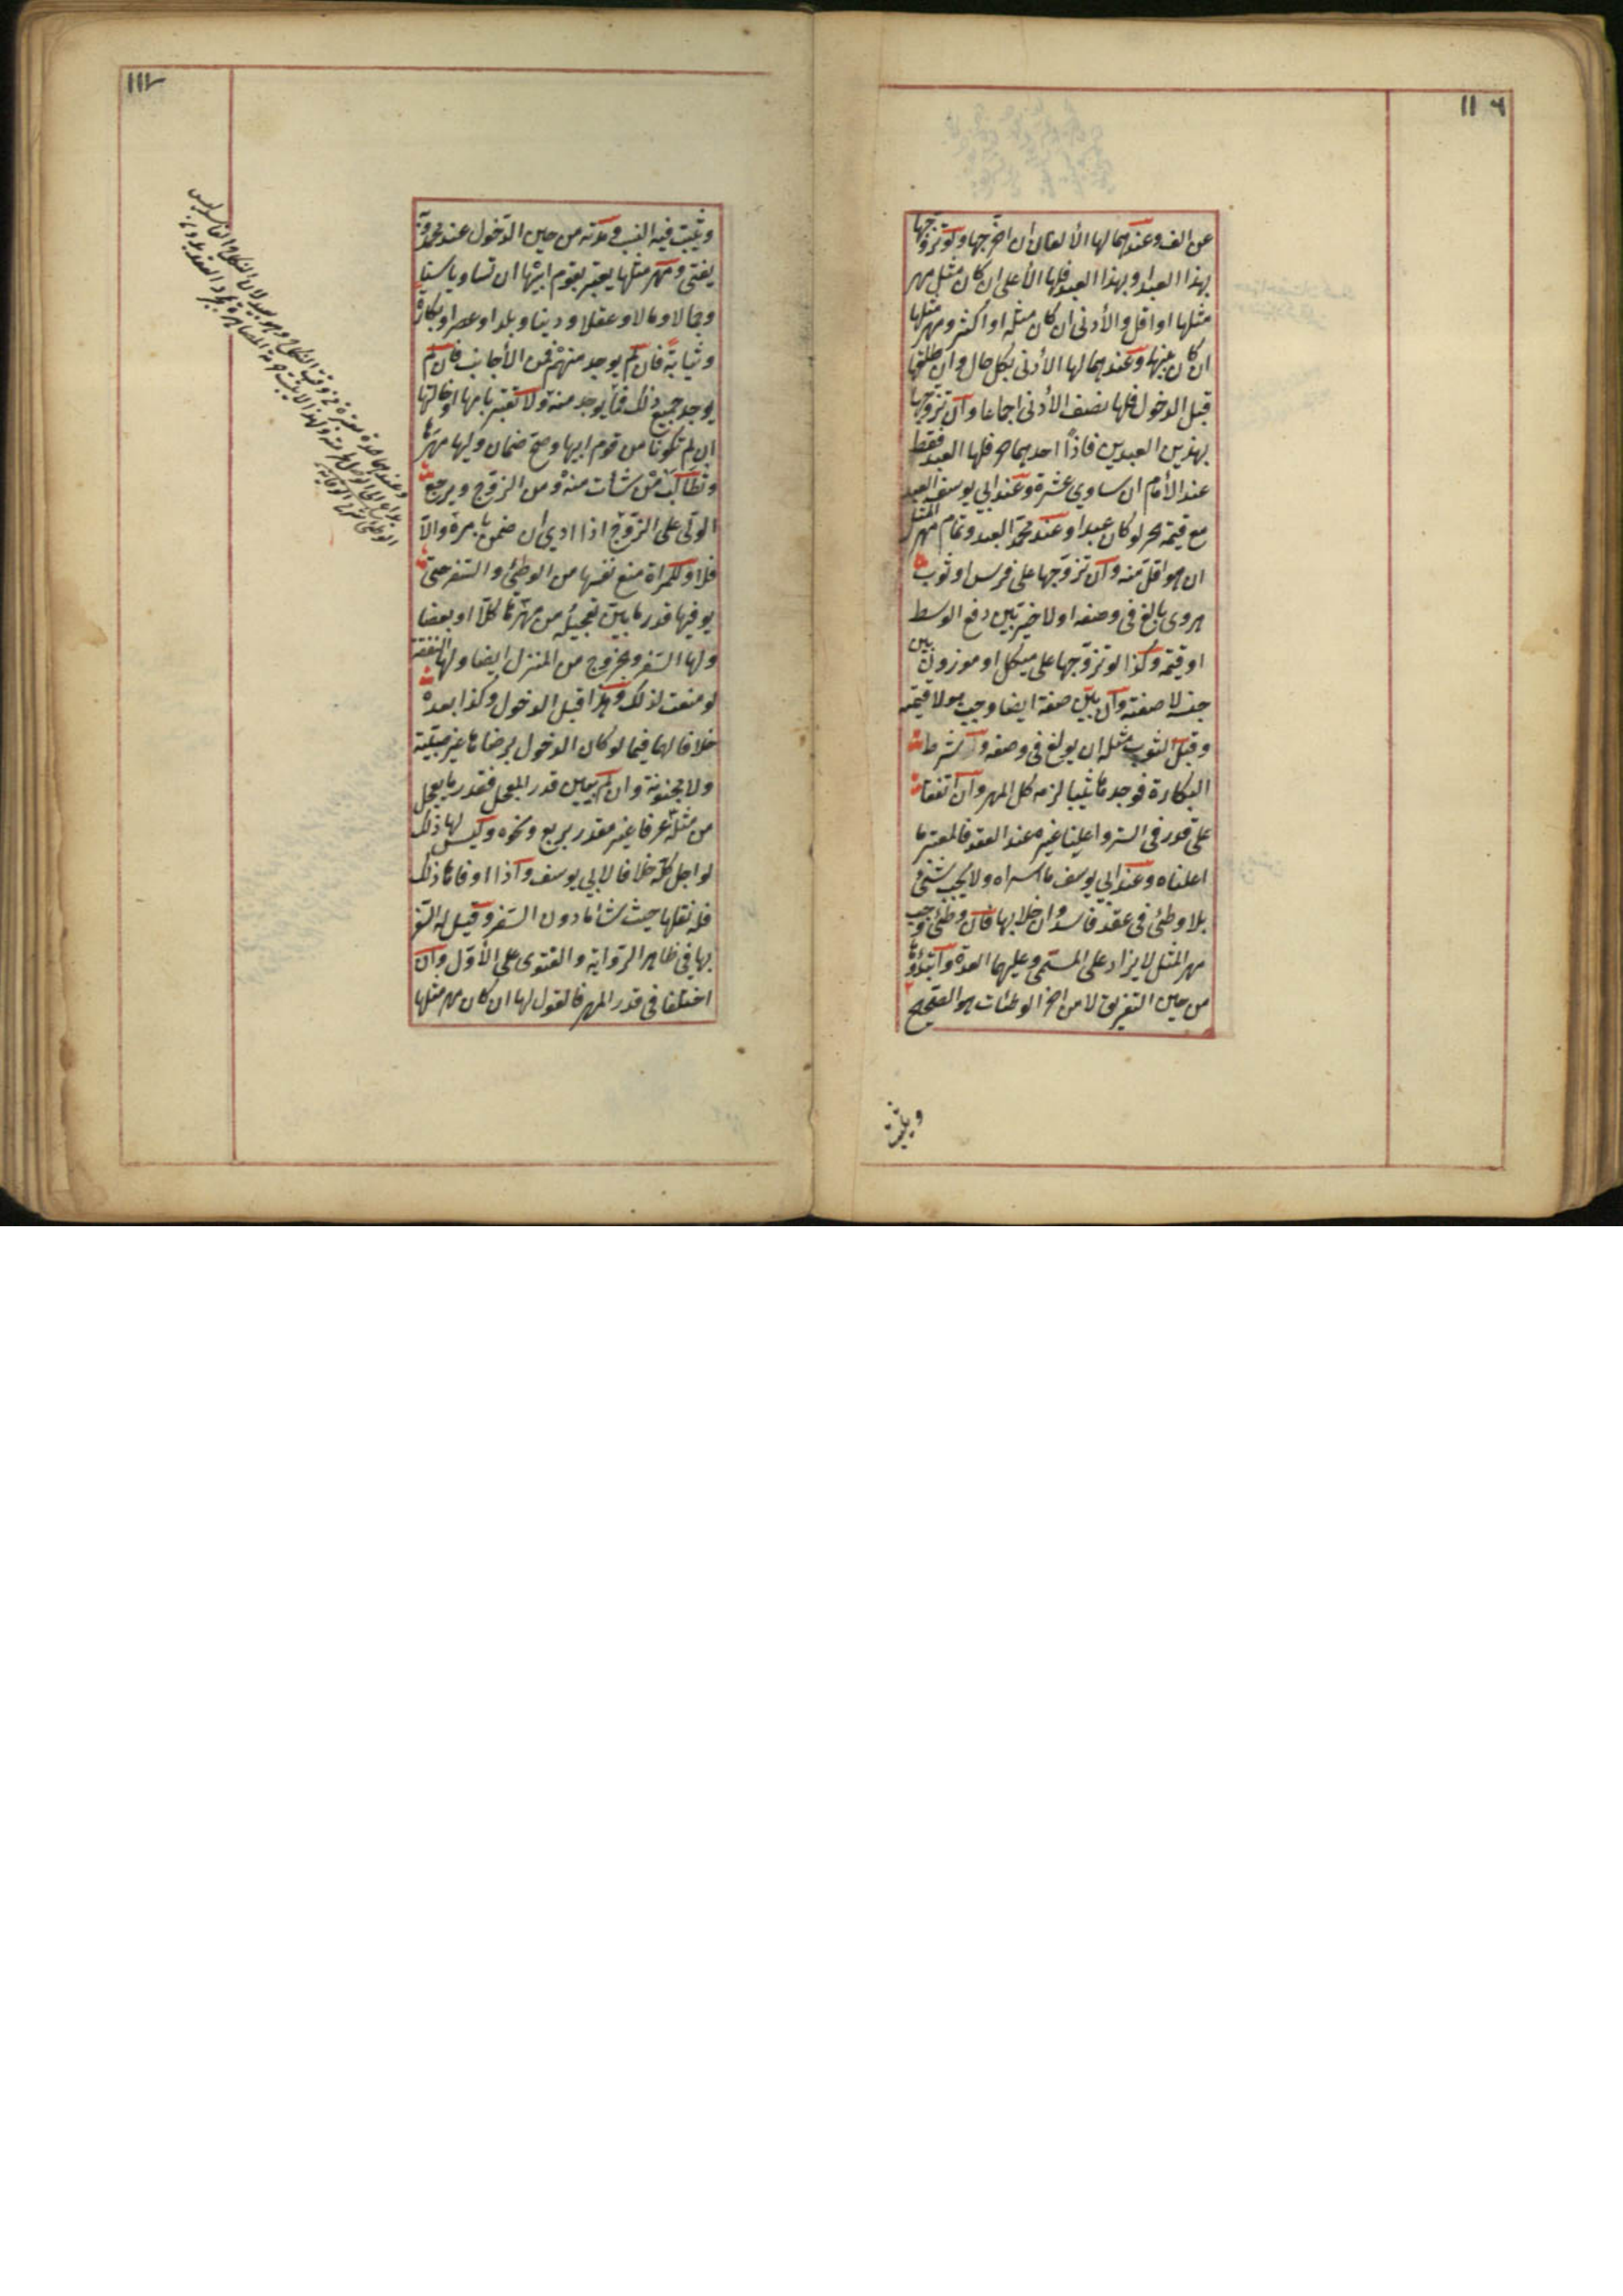 ١١٦
عن الف وعندهما لها الألفان ان اخرجها ولو تزوجها
بهذا العبد او بهذا العبد فلها الأعلى ان كان مثل مهر
مثلها او اقل والأدنى ان كان مثله او اكثر ومهر مثلها
ان كان بينهما وعندهما لها الأدنى بكل حال وان طلقها
قبل الدخول فلها نصف الأدنى اجماعا وان تزوجها
بهذين العبدين فاذا احدهما حر فلها العبد فقط
عند الأمام ان ساوى عشرة وعند ابي يوسف العبد
مع قيمة الحر لو كان عبدا وعند محمد العبد وتمام مهر المثل
ان هو اقل منه وان تزوجها على فرس او ثوب
هروى بالغ فى وصفه اولا خير بين دفع الوسط
او قيمته وكذا لو تزوجها على مكيل او موزون بين
جنسه لا صفته وان بين صفة ايضا وجب هو لا قيمته
وقيل الثوب مثله ان بولغ فى وصفه وان شرط
البكارة فوجدها ثيبا لزمه كل المهر وان اتفقا
على قدر فى السر واعلنا غيره عند العقد فالمعتبر ما
اعلناه وعند ابي يوسف ما اسراه ولا يجب شئ
بلا وطئ فى عقد فاسد وان خلا بها فان وطئ وجب
مهر المثل لا يزاد على المسمى وعليها العدة وابتداؤها
من حين التفريق لا من اخر الوطئات هو الصحيح
ويثبت
١١٧
ويثبت فيه النسب ومدته من حين الدخول عند محمد وبه
يفتى ومهر مثلها يعتبر بقوم ابيها ان تساويا سنا
وجمالا ومالا وعقلا ودينا وبلدا وعصرا وبكارة
وثيابة فان لم يوجد منهم فمن الأجانب فان لم
يوجد جميع ذلك فما يوجد منه ولا تعتبر بامها او خالتها
ان لم تكونا من قوم ابيها وصح ضمان وليها مهرها
وتطالب من شأت منه ومن الزوج ويرجع
الولى على الزوج اذا ادى ان ضمن بامره والا
فلا وللمرأة منع نفسها من الوطئ والسفر حتى
يوفيها قدر ما بين تعجيله من مهرها كلا او بعضا
ولها السفر والخروج من المنزل ايضا ولها النفقة
لو منعت لذلك وهذا قبل الدخول وكذا بعده
خلافا لهما فيما لو كان الدخول برضاها غير صبية
ولا مجنونة وان لم يبين قدر المعجل فقدر ما يعجل
من مثله عرفا غير مقدر بربع ونحوه وليس لها ذلك
لو اجل كله خلافا لابي يوسف واذا اوفاها ذلك
فله نقلها حيث شأ ما دون السفر وقيل له السفر
بها فى ظاهر الرواية والفتوى على الأول وان
اختلفا فى قدر المهر فالقول لها ان كان مهر مثلها